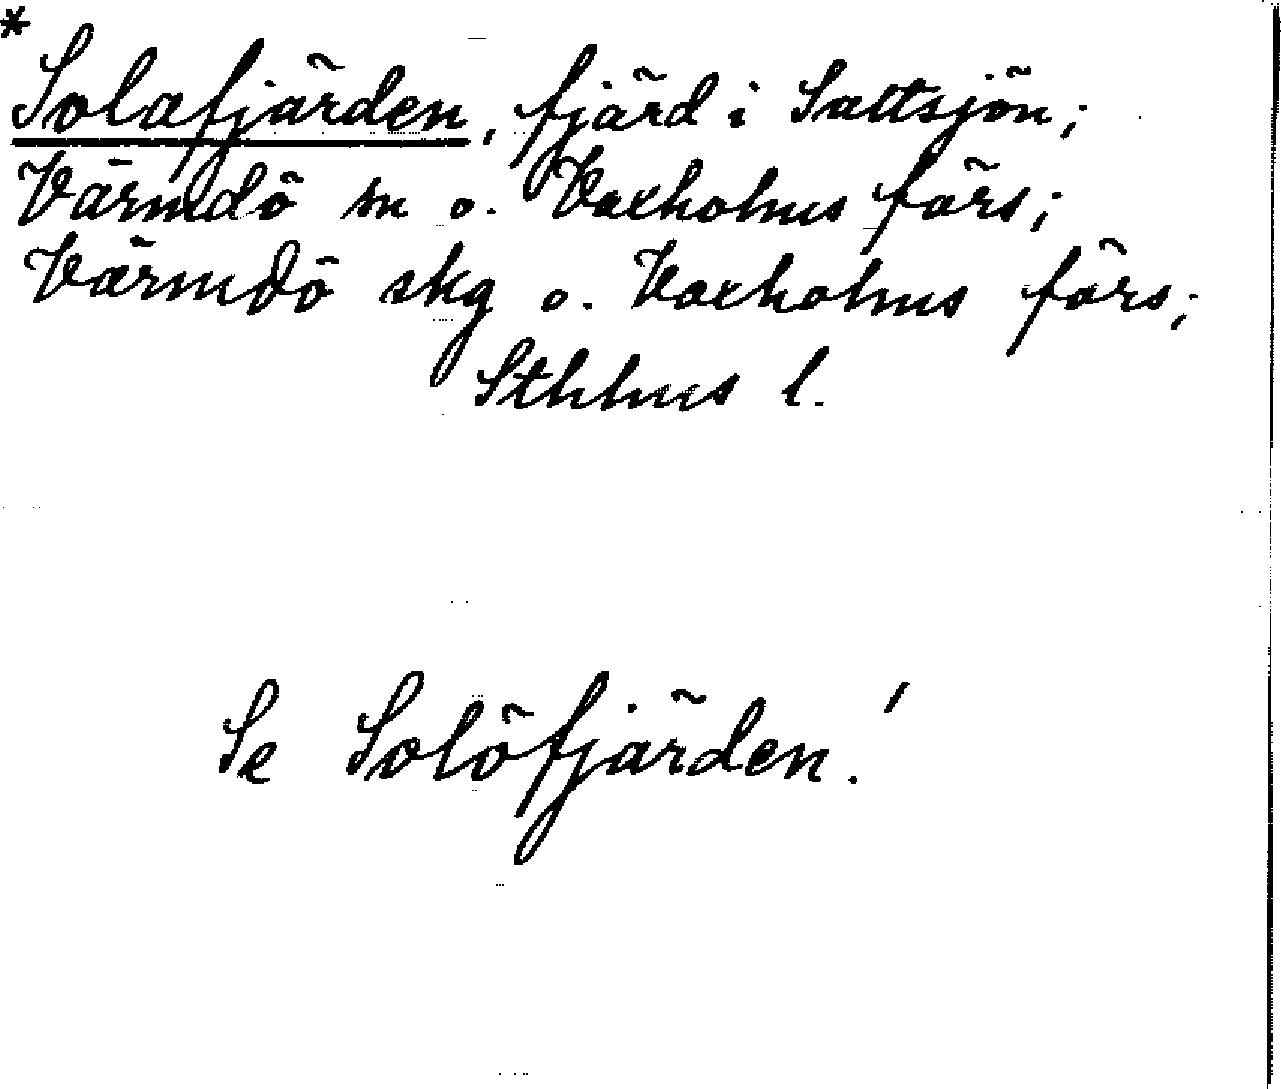 *
Solafjärden, fjärd i Saltsjön;
Värmdö sn o. Vaxholms förs;
Värmdö skg o. Vaxholms förs;
Sthlms l.
Se Solöfjärden.'